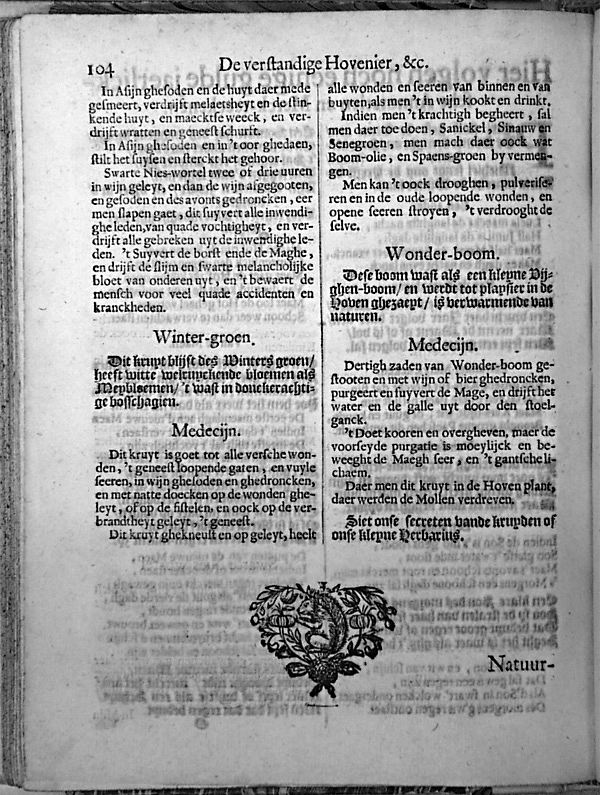 104 De verstandige Hovenier, &c.
In Asijn ghesoden en de huyt daer mede
gesmeert, verdrijft melaetsheyt en de stin-
kende huyt, en maecktse weeck, en ver-
drijft wratten en geneest schurft.
In Asijn ghesoden en in 't oor ghedaen,
stilt het suysen en sterckt het gehoor.
Swarte Nies-wortel twee of drie uuren
in wijn geleyt, en dan de wijn afgegooten,
en gesoden en des avonts gedroncken, eer
men slapen gaet, dit suyvert alle inwendi-
ghe leden, van quade vochtigheyt, en ver-
drijft alle gebreken uyt de inwendighe le-
den. 't Suyvert de borst ende de Maghe,
en drijft de slijm en swarte melancholijke
bloet van onderen uyt, en 't bewaert de
mensch voor veel quade accidenten en
kranckheden.
Winter-groen.
Dit kruyt blijft des Winters groen/
heeft witte welruyckende bloemen als
Meybloemen/ 't wast in donckerachti-
ge bosschagien.
Medecijn.
Dit kruyt is goet tot alle versche won-
den, 't geneest loopende gaten, en vuyle
seeren, in wijn ghesoden en ghedroncken,
en met natte doecken op de wonden ghe-
leyt, of op de fistelen, en oock op de ver-
brandtheyt geleyt, 't geneest.
Dit kruyt ghekneust en op geleyt, heelt
alle wonden en seeren van binnen en van
buyten, als men 't in wijn kookt en drinkt.
Indien men 't krachtigh begheert, sal
men daer toe doen, Sanickel, Sinauw en
Senegroen, men mach daer oock wat
Boom-olie, en Spaens-groen by vermen-
gen.
Men kan 't oock drooghen, pulverise-
ren en in de oude loopende wonden, en
opene seeren stroyen, 't verdrooght de
selve.
Wonder-boom.
Dese boom wast als een kleyne Vij-
ghen-boom/ en werdt tot playsier in de
Hoven ghezaeyt/ is verwarmende van
naturen.
Medecijn.
Dertigh zaden van Wonder-boom ge-
stooten en met wijn of bier ghedroncken,
purgeert en suyvert de Mage, en drijft het
water en de galle uyt door den stoel-
ganck.
't Doet kooren en overgheven, maer de
voorseyde purgatie is moeylijck en be-
weeght de Maegh seer, en 't gantsche li-
chaem.
Daer men dit kruyt in de Hoven plant,
daer werden de Mollen verdreven.
Siet onse secreten vande kruyden of
onse kleyne Herbarius.
Natuur-